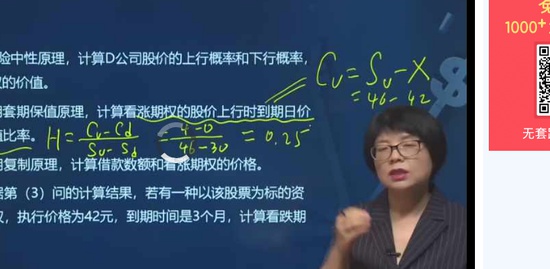 险中性原理，计算D公司股价的上行概率和下行概率，
权的价值。
Cu=Su-X
=46-42
用套期保值原理，计算看涨期权的股价上行时到期日价
值比率。 H=Cu-Cd/Su-Sd =4-0/46-30 =0.25
用复制原理，计算借款数额和看涨期权的价格。
据第（3）问的计算结果，若有一种以该股票为标的资
权，执行价格为42元，到期时间是3个月，计算看跌期
1000+
无套